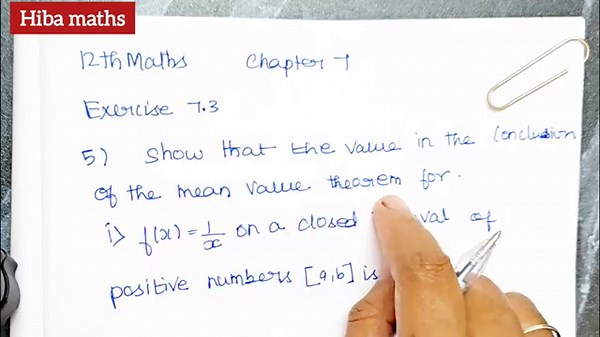 Hiba maths
12th Maths Chapter 7
Exercise 7.3
5) Show that the value in the Conclusion
of the mean value theorem for.
i) f(x) = 1/x on a closed of
positive numbers [a,b] is